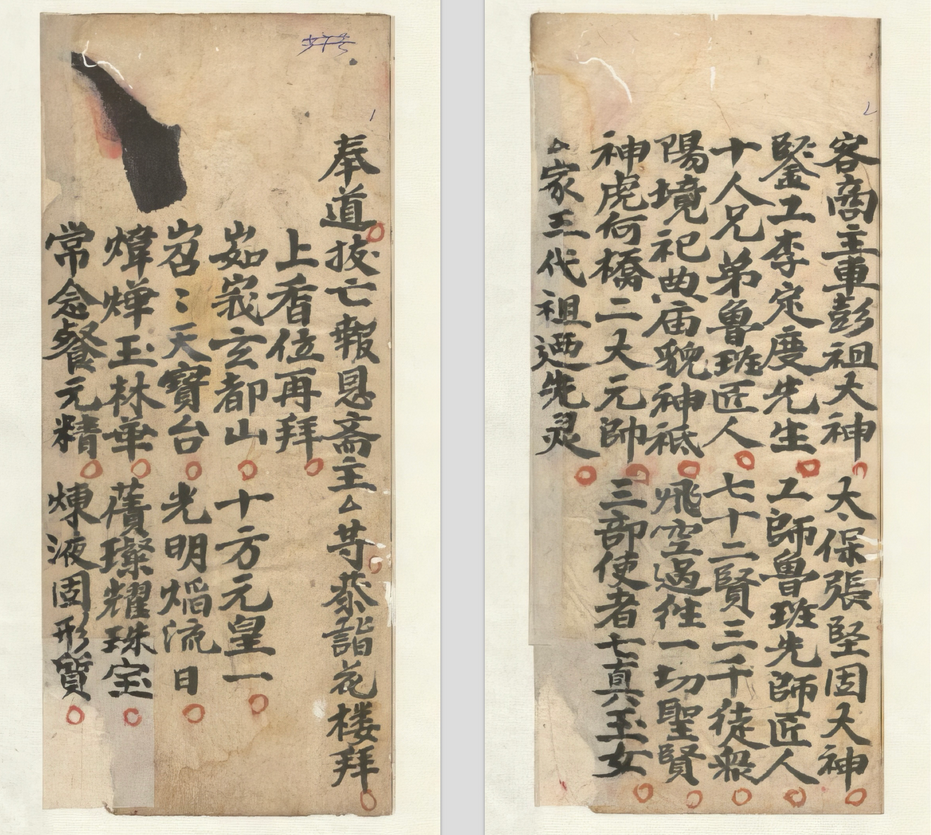 奉道拔亡報恩斋主厶等恭詣花楼拜
上香位再拜
峩玄都山 十方元皇一
岧〻天寶台 光明焰流日
煒燁玉林華 蒨璨耀珠宝
常念餐元精 煉液固形質
1
客商主車彭祖大神 太保張堅固大神
鋻工李定度先生 工師魯班先師匠人
十人兄弟魯班匠人 七十二賢三千徒衆
陽境祀典庙貌神祗 飛空過徃一切聖賢
神虎何橋二大元帥 三部使者七真玉女
厶家三代祖先灵
2